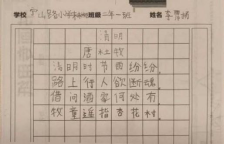 学校 山路小学 班级 二年一班 姓名
清明
唐 杜牧
清明时节雨纷纷,
路上行人欲断魂。
借问酒家何处有,
牧童遥指杏花村。